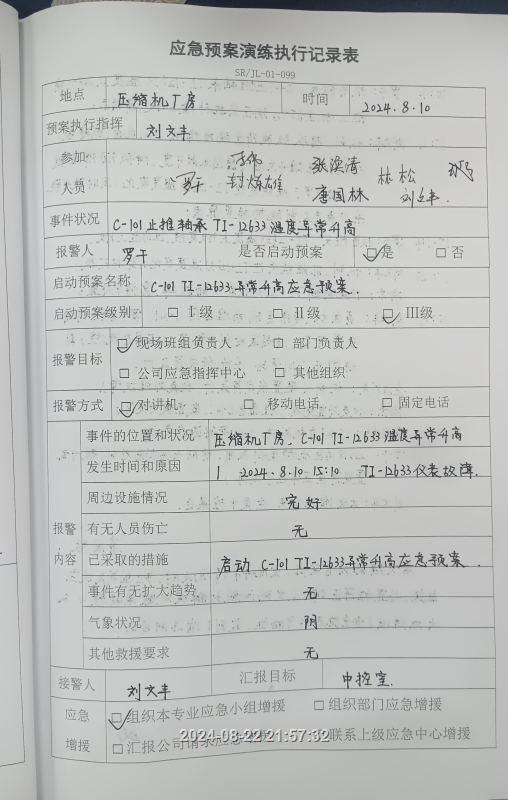 应急预案演练执行记录表
SR/JL-01-099
地点 压缩机厂房 时间 2024.8.10
预案执行指挥 刘文丰
参加人员 罗干 封炼雄 张溪涛 唐国林 林松 刘文丰
事件状况 C-101止推轴承 TI-12633温度异常升高
报警人 罗干 是否启动预案 ☑是 □否
启动预案名称 C-101 TI-12633异常升高应急预案.
启动预案级别 □ I级 □ II级 ☑ III级
报警目标 ☑现场班组负责人 □ 部门负责人
□ 公司应急指挥中心 □ 其他组织
报警方式 ☑对讲机 □ 移动电话 □ 固定电话
报警内容
事件的位置和状况 压缩机厂房、C-101 TI-12633温度异常升高
发生时间和原因 2024.8.10 15:10 TI-12633仪表故障.
周边设施情况 完好
有无人员伤亡 无
已采取的措施 启动 C-101 TI-12633异常升高应急预案.
事件有无扩大趋势 无
气象状况 阴
其他救援要求 无
接警人 刘文丰 汇报目标 中控室.
应急增援 ☑组织本专业应急小组增援 □组织部门应急增援
□汇报公司请求应急增援 联系上级应急中心增援
2024-08-22 21:57:32